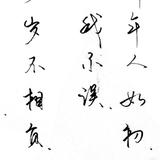 年人如初
我不误
岁不相负